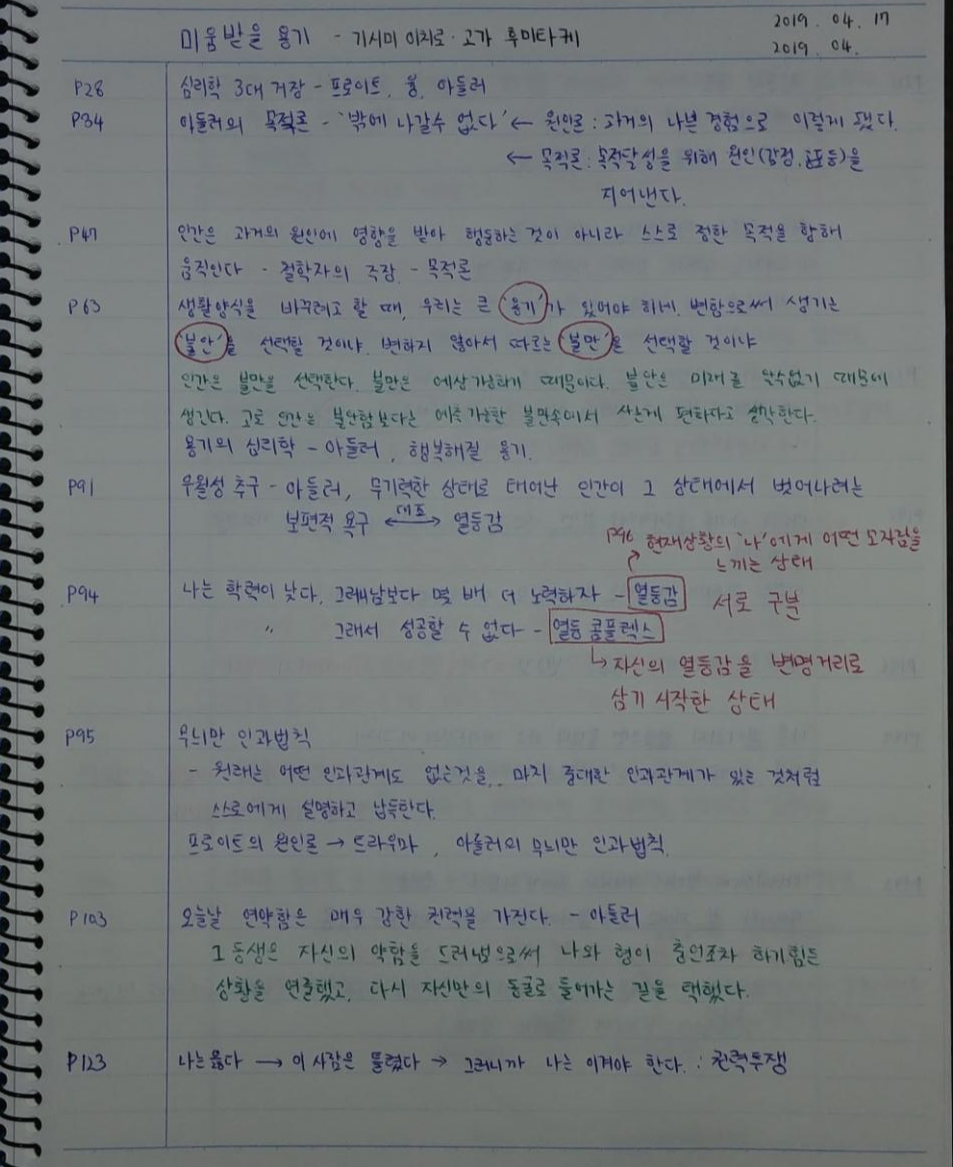 미움받을 용기 - 기시미 이치로·고가 후미타케
2019. 04. 17
2019. 04.
P28 심리학 3대 거장 - 프로이트, 융, 아들러
P34 아들러의 목적론 - '밖에 나갈수 없다' ← 원인론 : 과거의 나쁜 경험으로 이렇게 됐다.
← 목적론 : 목적달성을 위해 원인(감정, 공포등)을
지어낸다.
P47 인간은 과거의 원인에 영향을 받아 행동하는 것이 아니라 스스로 정한 목적을 향해
움직인다 - 철학자의 주장 - 목적론
P63 생활양식을 바꾸려고 할 때, 우리는 큰 '용기'가 있어야 하네. 변함으로써 생기는
'불안'을 선택할 것이냐. 변하지 않아서 따르는 '불만'을 선택할 것이냐
인간은 불만을 선택한다. 불만은 예상가능하기 때문이다. 불안은 미래를 알수없기 때문에
생긴다. 고로 인간은 불안함보다는 예측가능한 불만속에서 사는게 편하다고 생각한다.
용기의 심리학 - 아들러, 행복해질 용기.
P91 우월성 추구 - 아들러, 무기력한 상태로 태어난 인간이 그 상태에서 벗어나려는
보편적 욕구 ←대조→ 열등감
P96 현재상황의 '나'에게 어떤 모자람을
느끼는 상태
P94 나는 학력이 낮다. 그래서남보다 몇 배 더 노력하자 - 열등감 서로 구분
〃 그래서 성공할 수 없다 - 열등 콤플렉스
↳ 자신의 열등감을 변명거리로
삼기 시작한 상태
P95 무늬만 인과법칙
- 원래는 어떤 인과관계도 없는것을, 마치 중대한 인과관계가 있는 것처럼
스스로에게 설명하고 납득한다.
프로이트의 원인론 → 트라우마, 아들러의 무늬만 인과법칙.
P103 오늘날 연약함은 매우 강한 권력을 가진다. - 아들러
그 동생은 자신의 약함을 드러냄으로써 나와 형이 충언조차 하기힘든
상황을 연출했고, 다시 자신만의 동굴로 들어가는 길을 택했다.
P123 나는옳다 → 이 사람은 틀렸다 → 그러니까 나는 이겨야 한다. : 권력투쟁